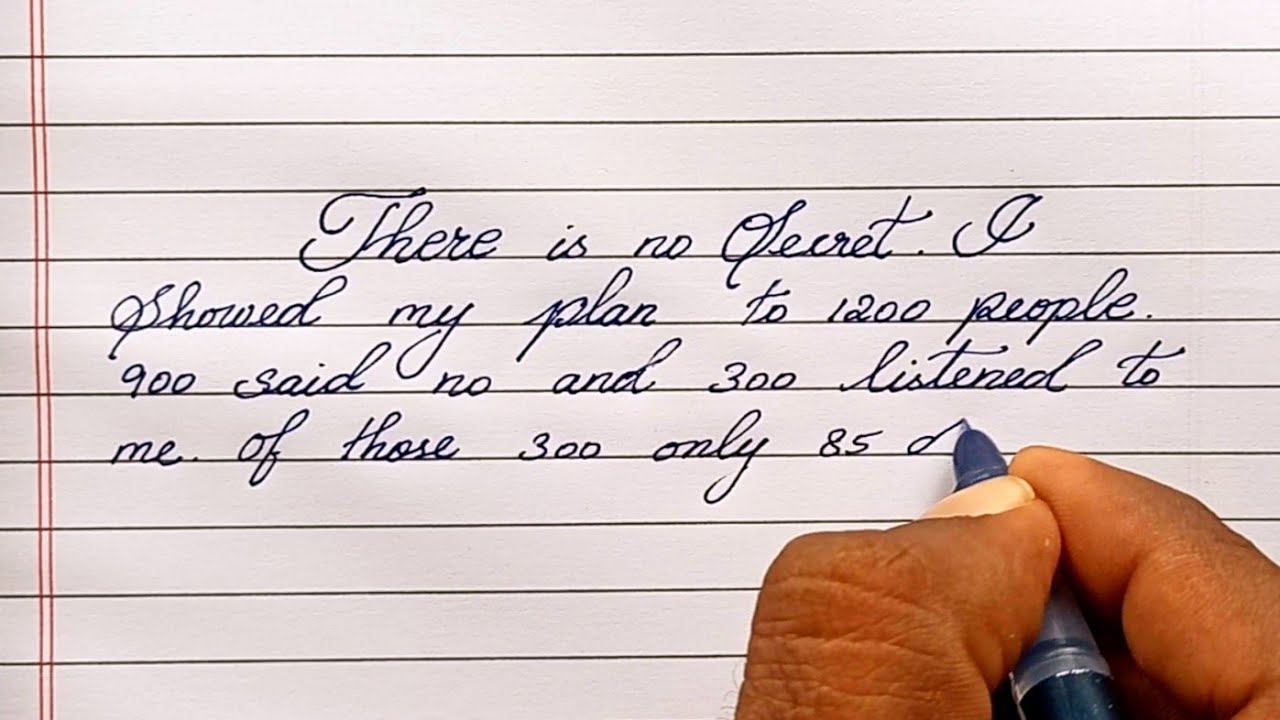 There is no Secret. I
Showed my plan to 1200 people.
900 said no and 300 listened to
me. Of those 300 only 85 d